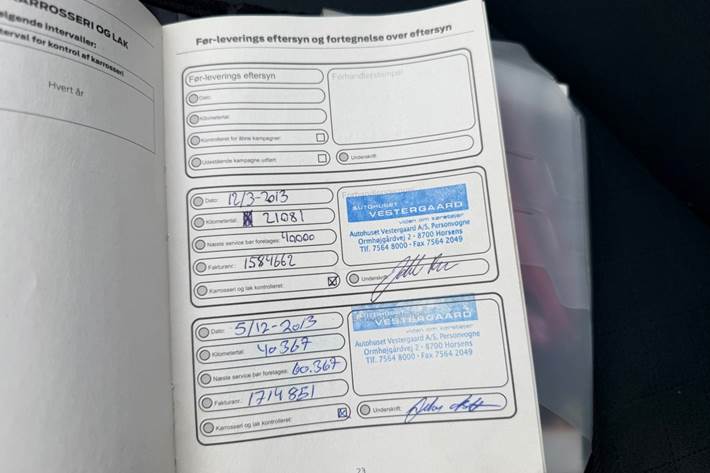 KARROSSERI OG LAK
ølgende intervaller:
terval for kontrol af karrosseri
Hvert år
Før-leverings eftersyn og fortegnelse over eftersyn
Før-leverings eftersyn
Forhandlerstempel
Dato:
Kilometertal:
Kontrolleret for åbne kampagner:
Udestående kampagne udført:
Underskrift:
Dato: 12/3-2013
Kilometertal: 21081
Næste service bør foretages: 40000
Fakturanr.: 1584662
Karrosseri og lak kontrolleret:
Forhandlerstempel
AUTOHUSET
VESTERGAARD
viden om køretøjer
Autohuset Vestergaard A/S, Personvogne
Ormhøjgårdvej 2 - 8700 Horsens
Tlf. 7564 8000 - Fax 7564 2049
Underskrift:
Dato: 5/12-2013
Kilometertal: 40367
Næste service bør foretages: 60.367
Fakturanr.: 1714851
Karrosseri og lak kontrolleret:
AUTOHUSET
VESTERGAARD
viden om køretøjer
Autohuset Vestergaard A/S, Personvogne
Ormhøjgårdvej 2 - 8700 Horsens
Tlf. 7564 8000 - Fax 7564 2049
Underskrift:
23